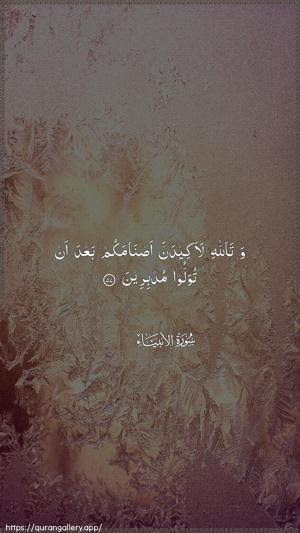 وَ تَاللّٰهِ لَاَكِيْدَنَّ اَصْنَامَكُمْ بَعْدَ اَنْ
تُوَلُّوْا مُدْبِرِيْنَ ﴿٥٧﴾
سُوْرَةُ الْاَنْبِيَاء
https://qurangallery.app/